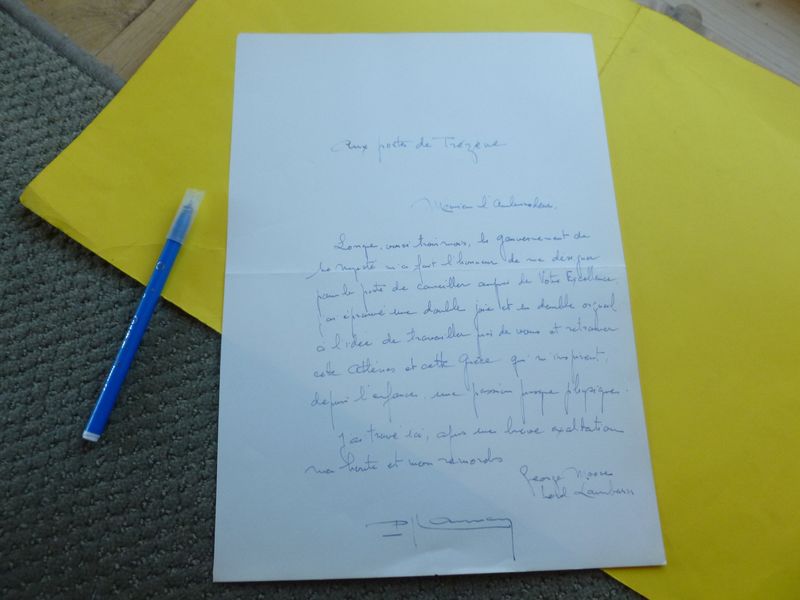 Aux portes de Trézène
Monsieur l'Ambassadeur,
Lorsque, voici trois mois, le gouvernement de
Sa Majesté m'a fait l'honneur de me désigner
pour le poste de conseiller auprès de Votre Excellence
j'ai éprouvé une double joie et un double orgueil
à l'idée de travailler près de vous et retrouver
cette Athènes et cette Grèce qui m'inspirent,
depuis l'enfance, une passion presque physique.
J'ai trouvé ici, après une brève exaltation
ma honte et mon remords
George Moore
Lord